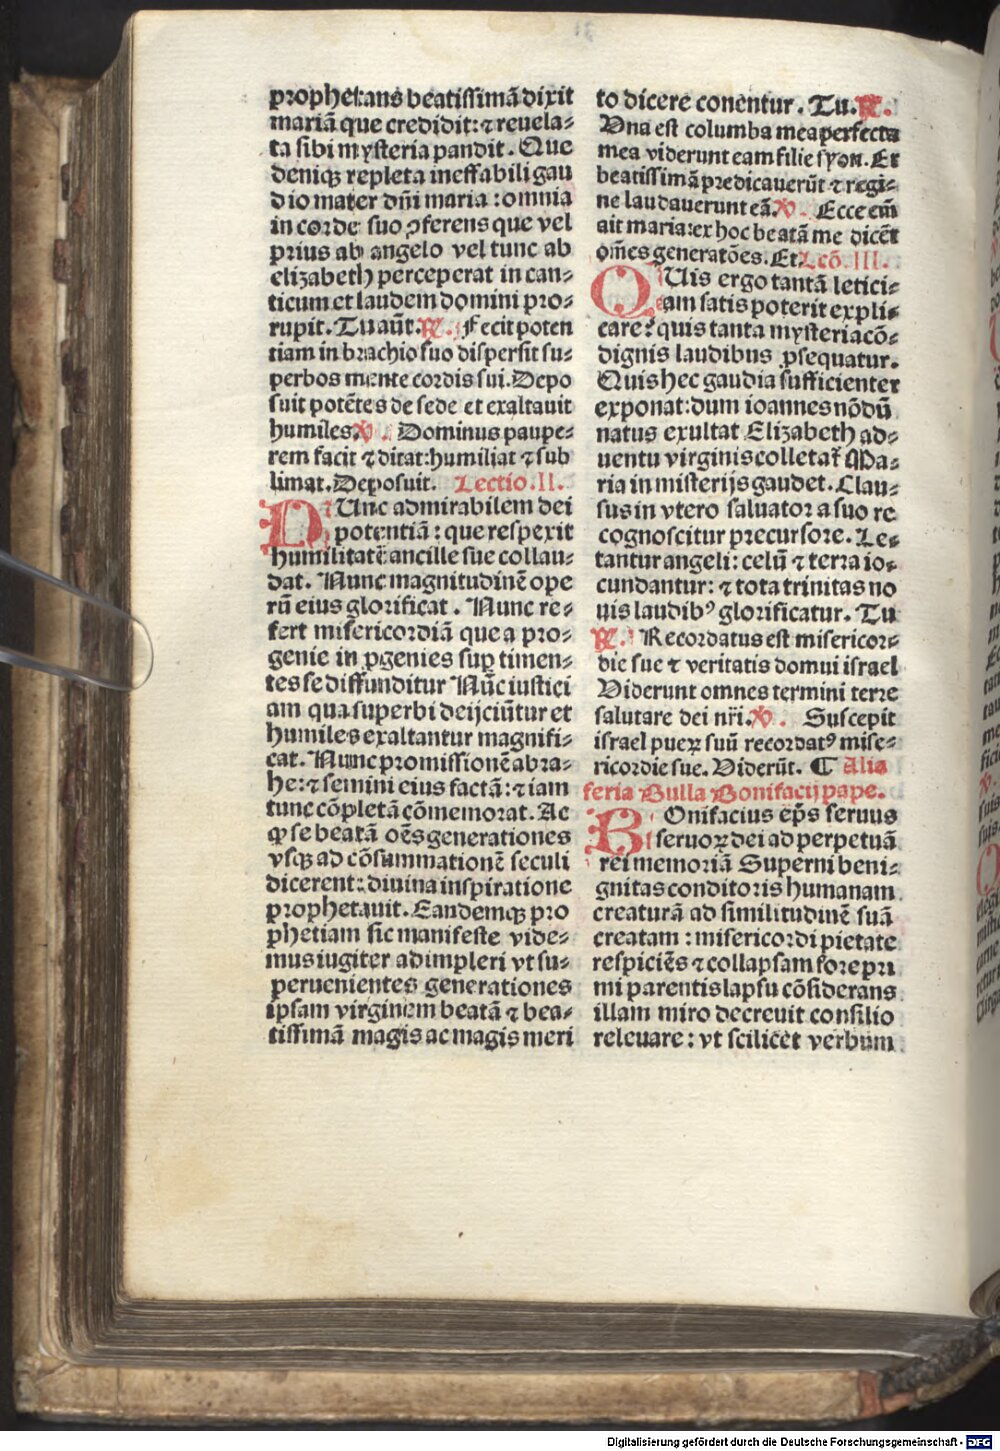 prophetans beatissimā dixit
mariā que credidit: ⁊ reuela⸗
ta sibi mysteria pandit. Que
deniqꝫ repleta ineffabili gau
dio mater dn̄i maria: omnia
in corde suo ꝓferens que vel
prius ab angelo vel tunc ab
elizabeth perceperat in can⸗
ticum et laudem domini pro⸗
rupit. Tu aūt. ℟. Fecit poten
tiam in brachio suo dispersit su⸗
perbos mente cordis sui. Depo
suit potētes de sede et exaltauit
humiles ℣. Dominus paupe⸗
rem facit ⁊ ditat: humiliat ⁊ sub
limat. Deposuit. Lectio. II.
NUnc admirabilem dei
potentiā: que respexit
humilitatē ancille sue collau⸗
dat. Nunc magnitudinē ope
rū eius glorificat. Nunc re⸗
fert misericordiā que a pro⸗
genie in ꝓgenies suꝑ timen⸗
tes se diffunditur Nūc iustici
am qua superbi deijciūtur et
humiles exaltantur magnifi⸗
cat. Nunc promissionē abra⸗
he: ⁊ semini eius factā: ⁊ iam
tunc cōpletā cōmemorat. Ac
ꝙ se beatā oēs generationes
vsqꝫ ad cōsummationē seculi
dicerent: diuina inspiratione
prophetauit. Eandemqꝫ pro
phetiam sic manifeste vide⸗
mus iugiter adimpleri vt su⸗
peruenientes generationes
ipsam virginem beatā ⁊ bea⸗
tissimā magis ac magis meri
to dicere conentur. Tu. ℟.
Vna est columba mea perfecta
mea viderunt eam filie syon. Et
beatissimā predicauerūt ⁊ regi⸗
ne laudauerunt eā. ℣. Ecce em̄
ait maria: ex hoc beatā me dicēt
om̄es generatōes. Et. Lcō. III.
QUis ergo tantā letici⸗
am satis poterit expli⸗
care? quis tanta mysteria cō⸗
dignis laudibus ꝓsequatur.
Quis hec gaudia sufficienter
exponat: dum ioannes nōdū
natus exultat Elizabeth ad⸗
uentu virginis colletat᷑ Ma⸗
ria in misterijs gaudet. Clau⸗
sus in vtero saluator a suo re
cognoscitur precursore. Le⸗
tantur angeli: celū ⁊ terra io⸗
cundantur: ⁊ tota trinitas no
uis laudibꝰ glorificatur. Tu
℟. Recordatus est misericor⸗
die sue ⁊ veritatis domui israel
Viderunt omnes termini terre
salutare dei nr̄i. ℣. Suscepit
israel pueꝝ suū recordatꝰ mise⸗
ricordie sue. Viderūt. ¶ Alia
feria Bulla Bonifacij pape.
BOnifacius ep̄s seruus
seruoꝝ dei ad perpetuā
rei memoriā Superni beni⸗
gnitas conditoris humanam
creaturā ad similitudinē suā
creatam: misericordi pietate
respiciēs ⁊ collapsam fore pri
mi parentis lapsu cōsiderans
illam miro decreuit consilio
releuare: vt scilicet verbum
Digitalisierung gefördert durch die Deutsche Forschungsgemeinschaft - DFG